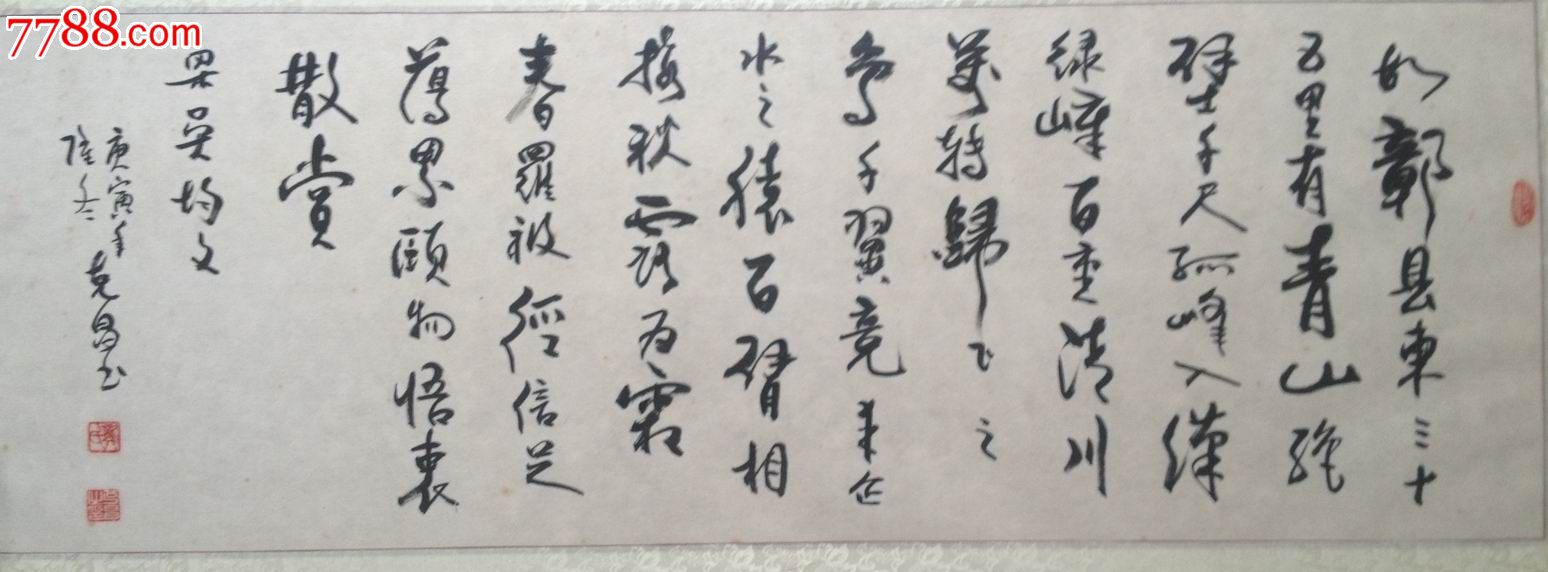 7788.com
故鄣县東三十
五里有青山絕
壁千尺孤峰入漢
绿嶂百重清川
萬转歸飞之
鳥千翼竞来企
水之猿百臂相
接秋露为霜
春羅被徑信足
荡累頤物悟衷
散賞
梁吴均文
庚寅年
隆冬
克昌书